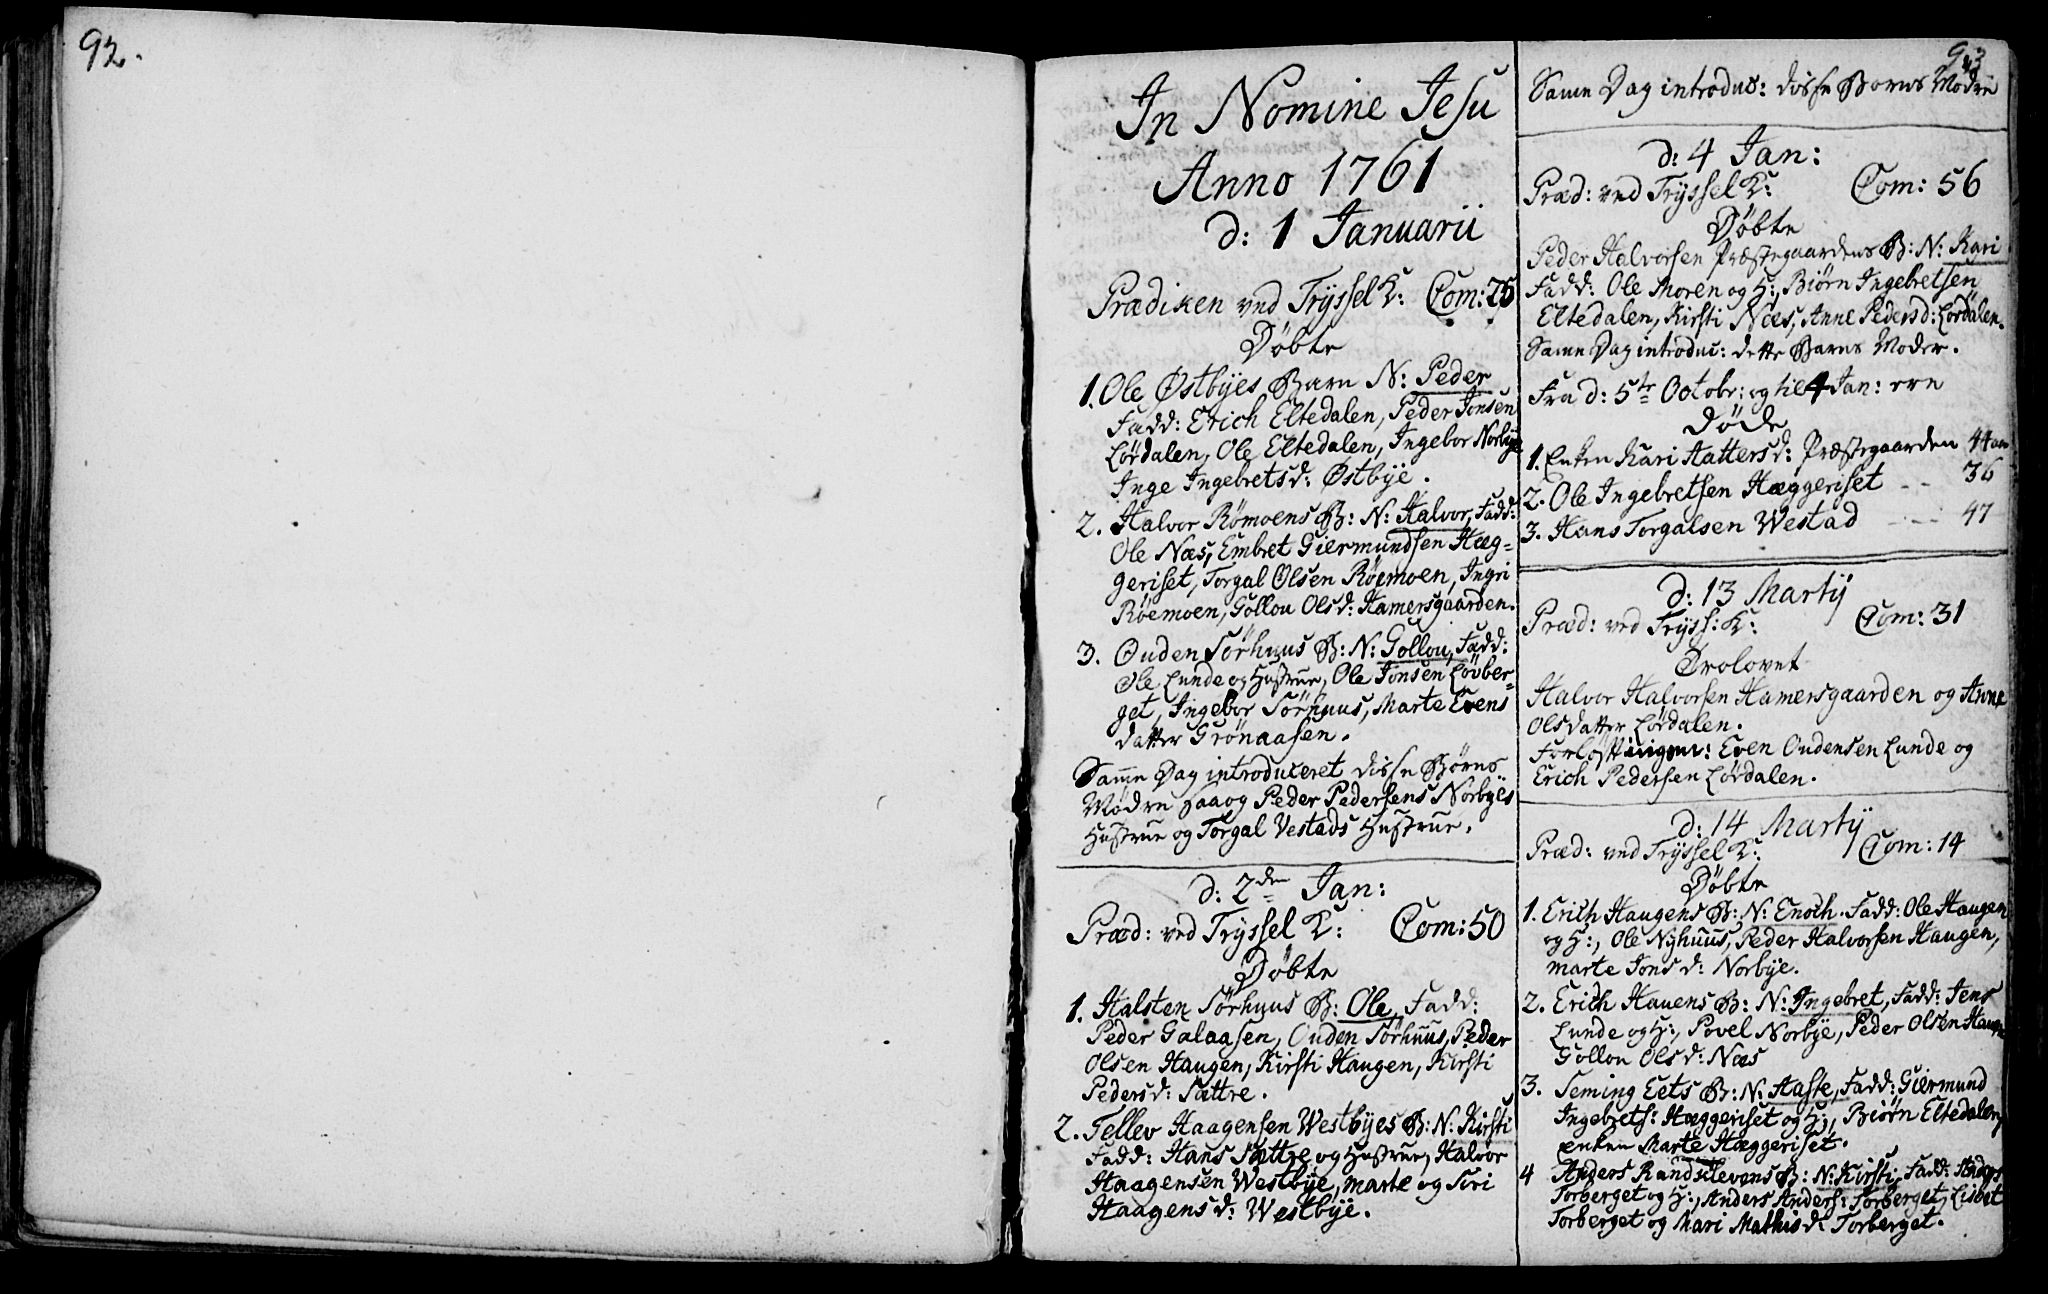 92.
In Nomine Jesu
Anno 1761
d: 1 Januarii
Prædiken ved Tryssel K: Com: 25
Døbte
1. Ole Østbyes Barn N: Peder
Fadd: Erich Eltedalen, Peder Jonsen
Lørdalen, Ole Eltedalen, Ingebor Norbye
Inge Ingebretsd: Østbye.
2. Halvor Rømoens B: N: Halvor, Fadd:
Ole Næs, Embret Giermundsen Hæg=
geriset, Torgal Olsen Røemoen, Ingri
Røemoen, Gollou Olsd: Hamersgaarden.
3. Ouden Sørhuus B: N: Gollou, Fadd:
Ole Lunde og Hustrue, Ole Jonsen Løvber=
get, Ingebor Sørhuus, Marte Evens
datter Grønaasen.
Samme Dag introduceret disse Børns
Mødre saa og Peder Pedersens Norbyes
Hustrue og Torgal Vestads Hustrue.
d: 2de Jan:
Præd: ved Tryssel K: Com: 50
Døbte
1. Halsten Sørhuus B: Ole, Fadd:
Peder Galaasen, Ouden Sørhuus, Peder
Olsen Haugen, Kirsti Haugen, Kirsti
Pedersd: Sættre.
2. Tellev Haagensen Westbyes B: N: Kirsti
Fadd: Hans Sættre og Hustrue, Halvor
Haagensen Westbye, Marte og Siri
Haagensd: Westbye.
93
Samme Dag introduc: disse Børns Mødre
d: 4 Jan:
Præd: ved Tryssel K: Com: 56
Døbte
Peder Halvorsen Præstegaardens B: N: Kari
Fadd: Ole Moren og H:, Biørn Ingebretsen
Eltedalen, Kirsti Næs, Anne Pedersd: Lørdalen.
Samme Dag introduc: dette Barns Moder.
Fra d: 5te Octobr: og til 4 Jan: ere
Døde
1. Enken Kari Hattersd: Præstegaarden 44 aar
2. Ole Ingebretsen Hæggeriset - - 36
3. Hans Torgalsen Westad - - - 47
d: 13 Martij
Præd: ved Tryss: K: Com: 31
Trolovet
Halvor Halvorsen Hamersgaarden og Anne
Olsdatter Lørdalen.
Forlostningm: Even Oudensen Lunde og
Erich Pedersen Lørdalen.
d: 14 Martij
Præd: ved Tryssel K: Com: 14
Døbte
1. Erich Haugens B: N: Enoch. Fadd: Ole Haugen
og H:, Ole Nyhuus, Peder Halvorsen Haugen,
Marte Jonsd: Norbye.
2. Erich Hauens B: N: Ingebret, Fadd: Jens
Lunde og H:, Povel Norbye, Peder Olsen Haugen
Gollou Olsd: Næs
3. Seming Eets B: N: Aaste, Fadd: Giermund
Ingebrets: Hæggeriset og H:, Biørn Eltedalen,
Enken Marte Hæggeriset.
4 Anders Rundslevens B: N: Kirsti, Fadd: Anders
Torberget og H:, Anders Anders: Torberget, Lisbet
Torberget og Mari Mathisd: Torberget.